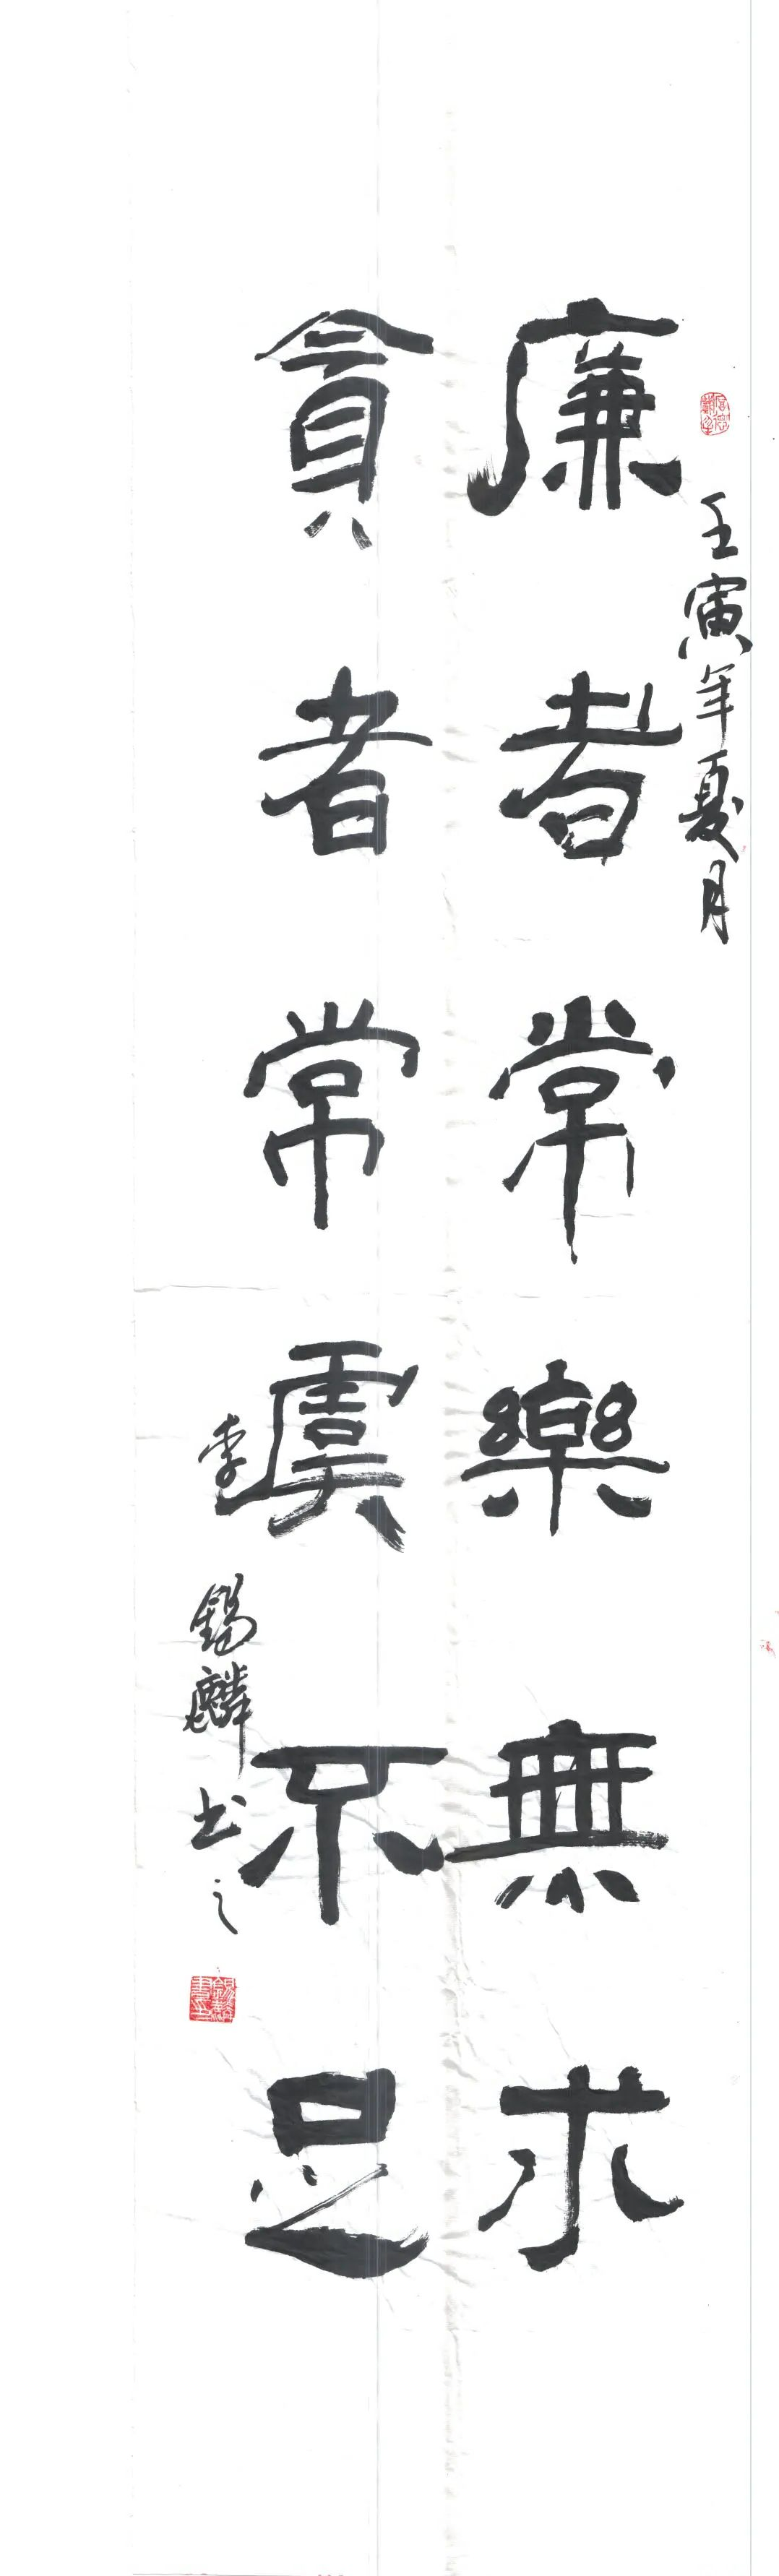 壬寅年夏月
廉者常樂無求
貪者常虞不足
李錫麟书之
錫麟書印